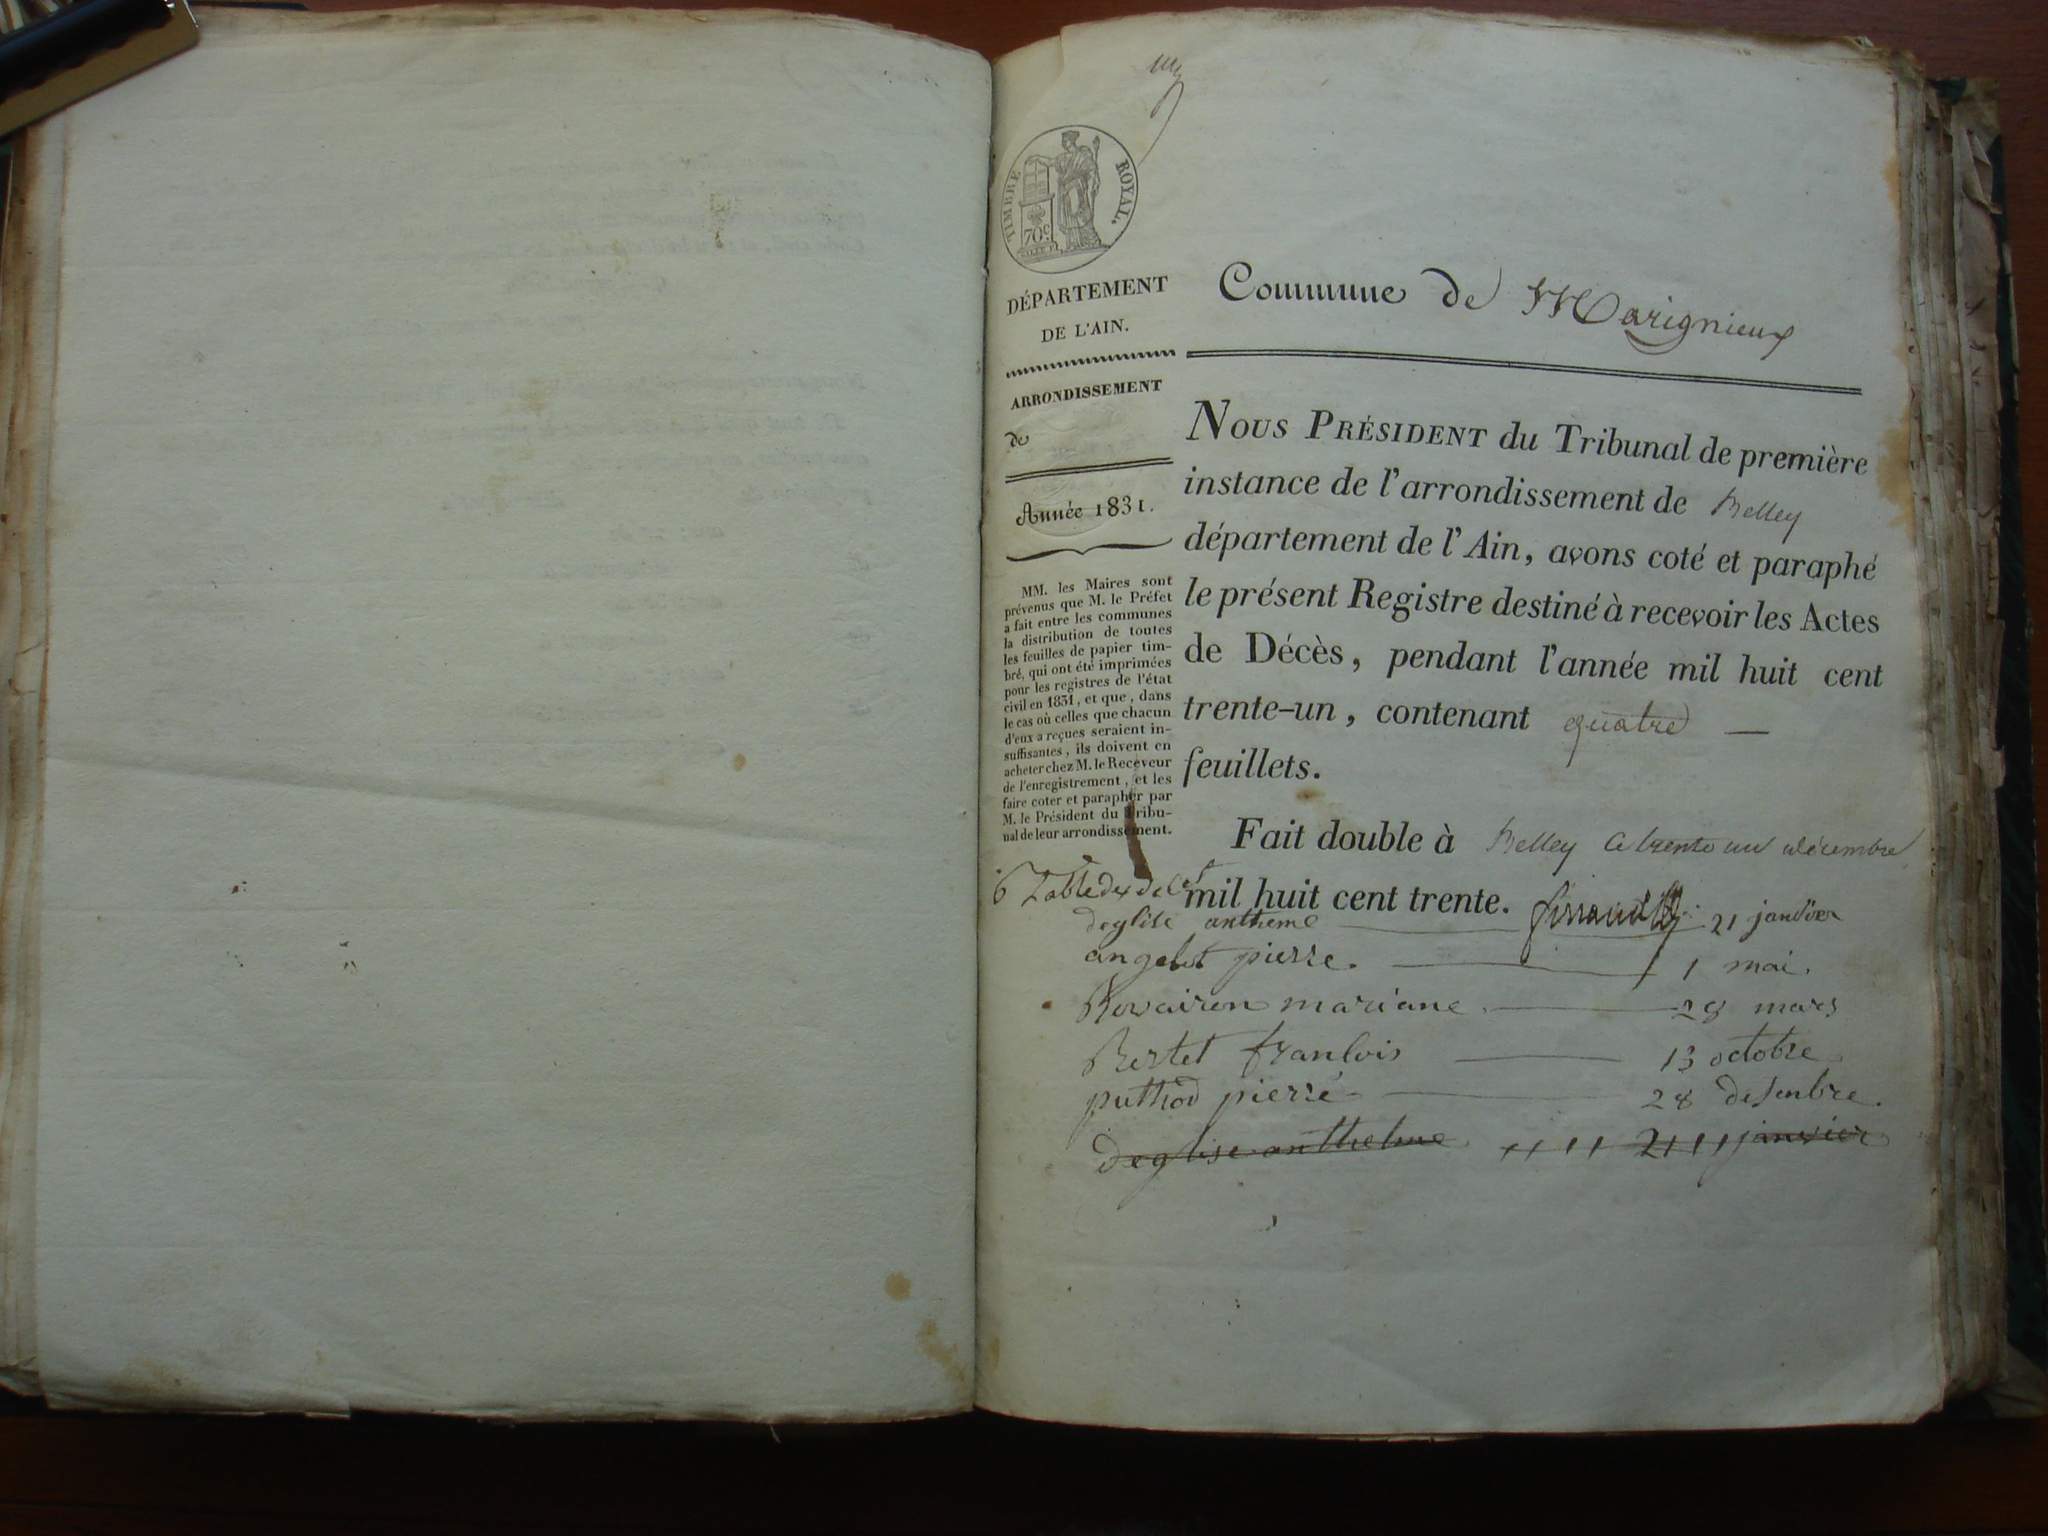 TIMBRE ROYAL.
70c
DÉPARTEMENT
DE L'AIN.
ARRONDISSEMENT
de
Année 1831.
MM. les Maires sont
prévenus que M. le Préfet
a fait entre les communes
la distribution de toutes
les feuilles de papier tim-
bré, qui ont été imprimées
pour les registres de l'état
civil en 1831, et que, dans
le cas où celles que chacun
d'eux a reçues seraient in-
suffisantes, ils doivent en
acheter chez M. le Receveur
de l'enregistrement, et les
faire coter et parapher par
M. le Président du Tribu-
nal de leur arrondissement.
Commune de Marignieux
NOUS PRÉSIDENT du Tribunal de première
instance de l'arrondissement de Belley
département de l'Ain, avons coté et paraphé
le présent Registre destiné à recevoir les Actes
de Décès, pendant l'année mil huit cent
trente-un, contenant quatre —
feuillets.
Fait double à Belley le trente un décembre
mil huit cent trente.
6 Table des
deglise antheme 21 janvier
angelot pierre. 1 mai.
Rovairon mariane 28 mars
Bertet franlois 13 octobre
puthod pierre 28 desenbre.
deglise anthelme 21 janvier